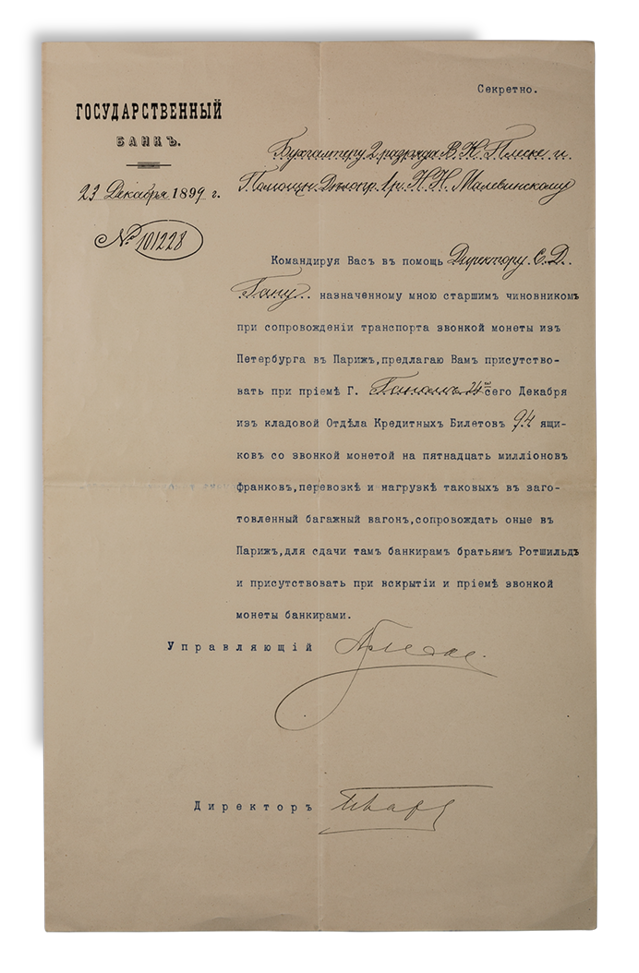 Секретно.
ГОСУДАРСТВЕННЫЙ
БАНКЪ.
23 Декабря 1899 г.
№ 101228
Бухгалтеру 2 разряда В. Н. Плеске и
Помощн. 1 р. Н. Н. Малевинскому
Командируя Васъ въ помощь Директору Е. Д.
Гану назначенному мною старшимъ чиновникомъ
при сопровожденіи транспорта звонкой монеты изъ
Петербурга въ Парижъ,предлагаю Вамъ присутство-
вать при пріемѣ Г. Ганомъ 24го сего Декабря
изъ кладовой Отдѣла Кредитныхъ Билетовъ 94 ящи-
ковъ со звонкой монетой на пятнадцать милліоновъ
франковъ,перевозкѣ и нагрузкѣ таковыхъ въ заго-
товленный багажный вагонъ,сопровождать оные въ
Парижъ,для сдачи тамъ банкирамъ братьямъ Ротшильдъ
и присутствовать при вскрытіи и пріемѣ звонкой
монеты банкирами.
Управляющій
Директоръ